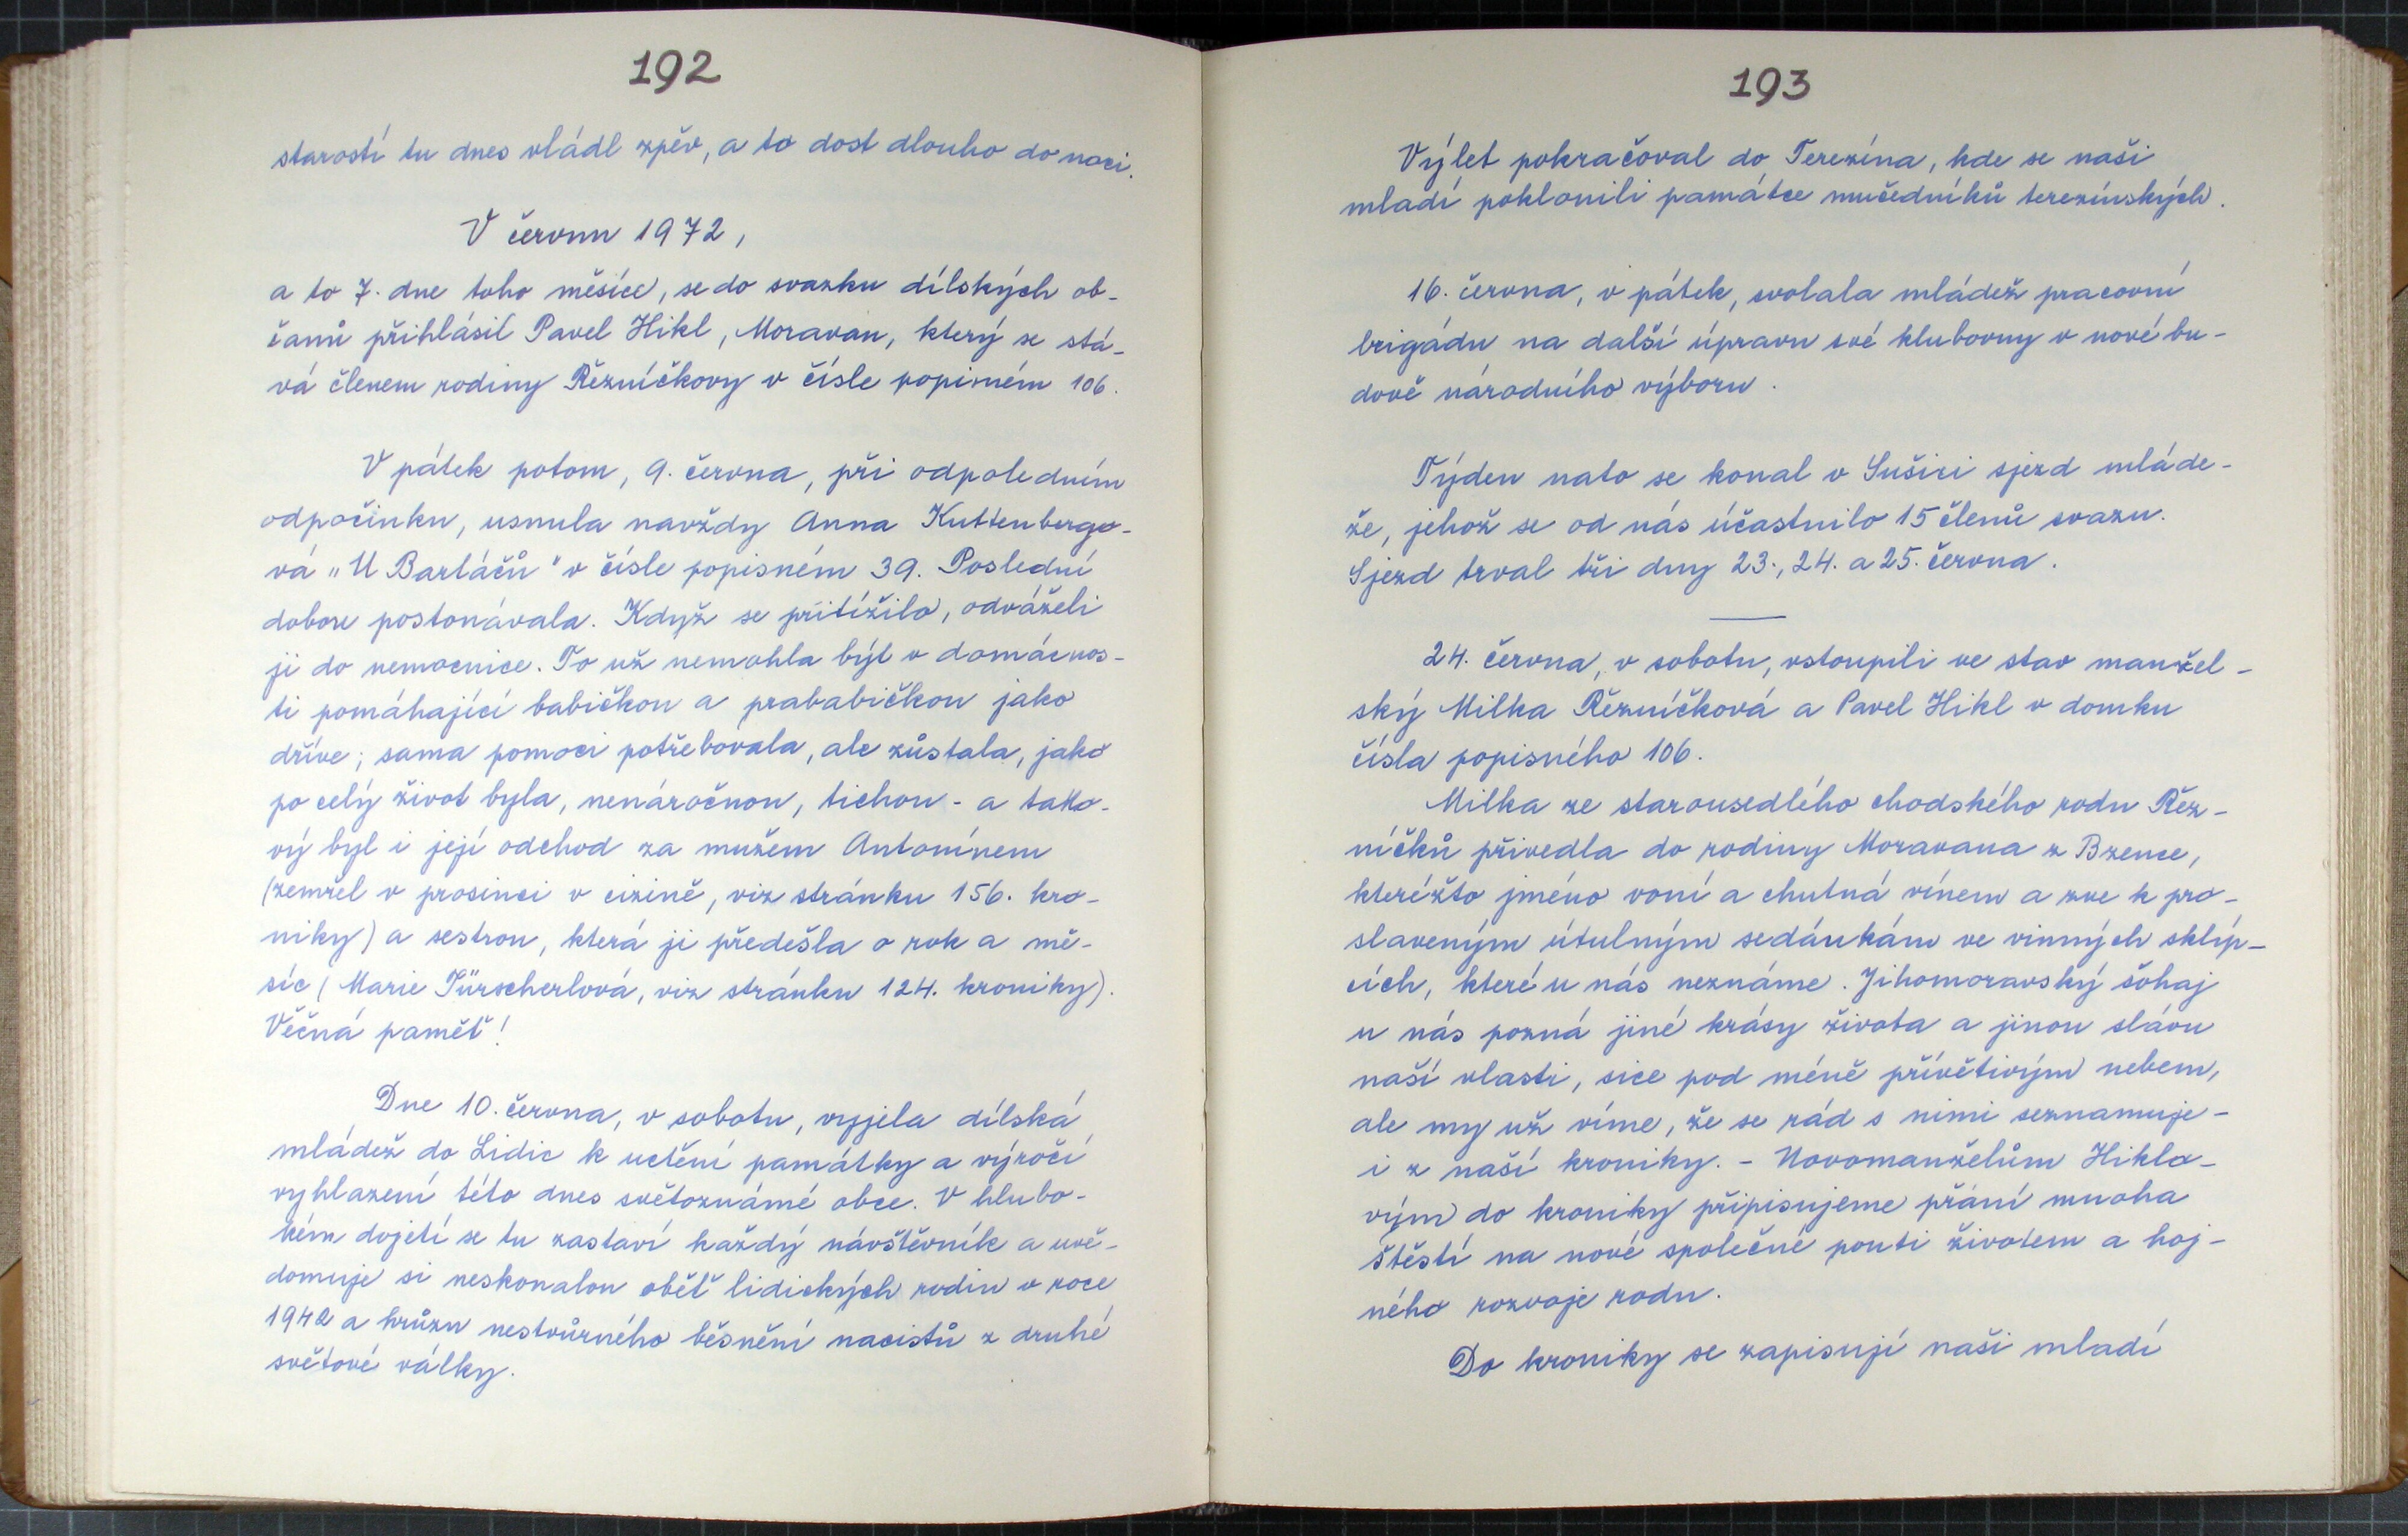 192
starostí tu dnes vládl zpěv, a to dost dlouho do noci.
V červnu 1972,
a to 7. dne toho měsíce, se do svazku dílských ob-
čanů přihlásil Pavel Hikl, Moravan, který se stá-
vá členem rodiny Řezníčkovy v čísle popisném 106.
V pátek potom, 9. června, při odpoledním
odpočinku, usnula navždy Anna Kuttenbergo-
vá „U Bartáčů" v čísle popisném 39. Poslední
dobou postonávala. Když se přitížilo, odváželi
ji do nemocnice. To už nemohla být v domácnos-
ti pomáhající babičkou a prababičkou jako
dříve; sama pomoci potřebovala, ale zůstala, jako
po celý život byla, nenáročnou, tichou - a tako-
vý byl i její odchod za mužem Antonínem
(zemřel v prosinci v cizině, viz stránku 156. kro-
niky) a sestrou, která ji předešla o rok a mě-
síc (Marie Türscherlová, viz stránku 124. kroniky).
Věčná paměť!
Dne 10. června, v sobotu, vyjela dílská
mládež do Lidic k uctění památky a výročí
vyhlazení této dnes světoznámé obce. V hlubo-
kém dojetí se tu zastaví každý návštěvník a uvě-
domuje si neskonalou oběť lidických rodin v roce
1942 a hrůzu nestvůrného běsnění nacistů z druhé
světové války.
193
Výlet pokračoval do Terezína, kde se naši
mladí poklonili památce mučedníků terezínských.
16. června, v pátek, svolala mládež pracovní
brigádu na další úpravu své klubovny v nové bu-
dově národního výboru.
Týden nato se konal v Sušici sjezd mláde-
že, jehož se od nás účastnilo 15 členů svazu.
Sjezd trval tři dny 23., 24. a 25. června.
24. června, v sobotu, vstoupili ve stav manžel-
ský Milka Řezníčková a Pavel Hikl v domku
čísla popisného 106.
Milka ze starousedlého chodského rodu Řez-
níčků přivedla do rodiny Moravana z Bzence,
kteréžto jméno voní a chutná vínem a zve k pro-
slaveným útulným sedánkám ve vinných sklíp-
cích, které u nás neznáme. Jihomoravský šohaj
u nás pozná jiné krásy života a jinou slávu
naší vlasti, sice pod méně přívětivým nebem,
ale my už víme, že se rád s nimi seznamuje-
i z naší kroniky. - Novomanželům Hiklo-
vým do kroniky připisujeme přání mnoha
štěstí na nové společné pouti životem a hoj-
ného rozvoje rodu.
Do kroniky se zapisují naši mladí